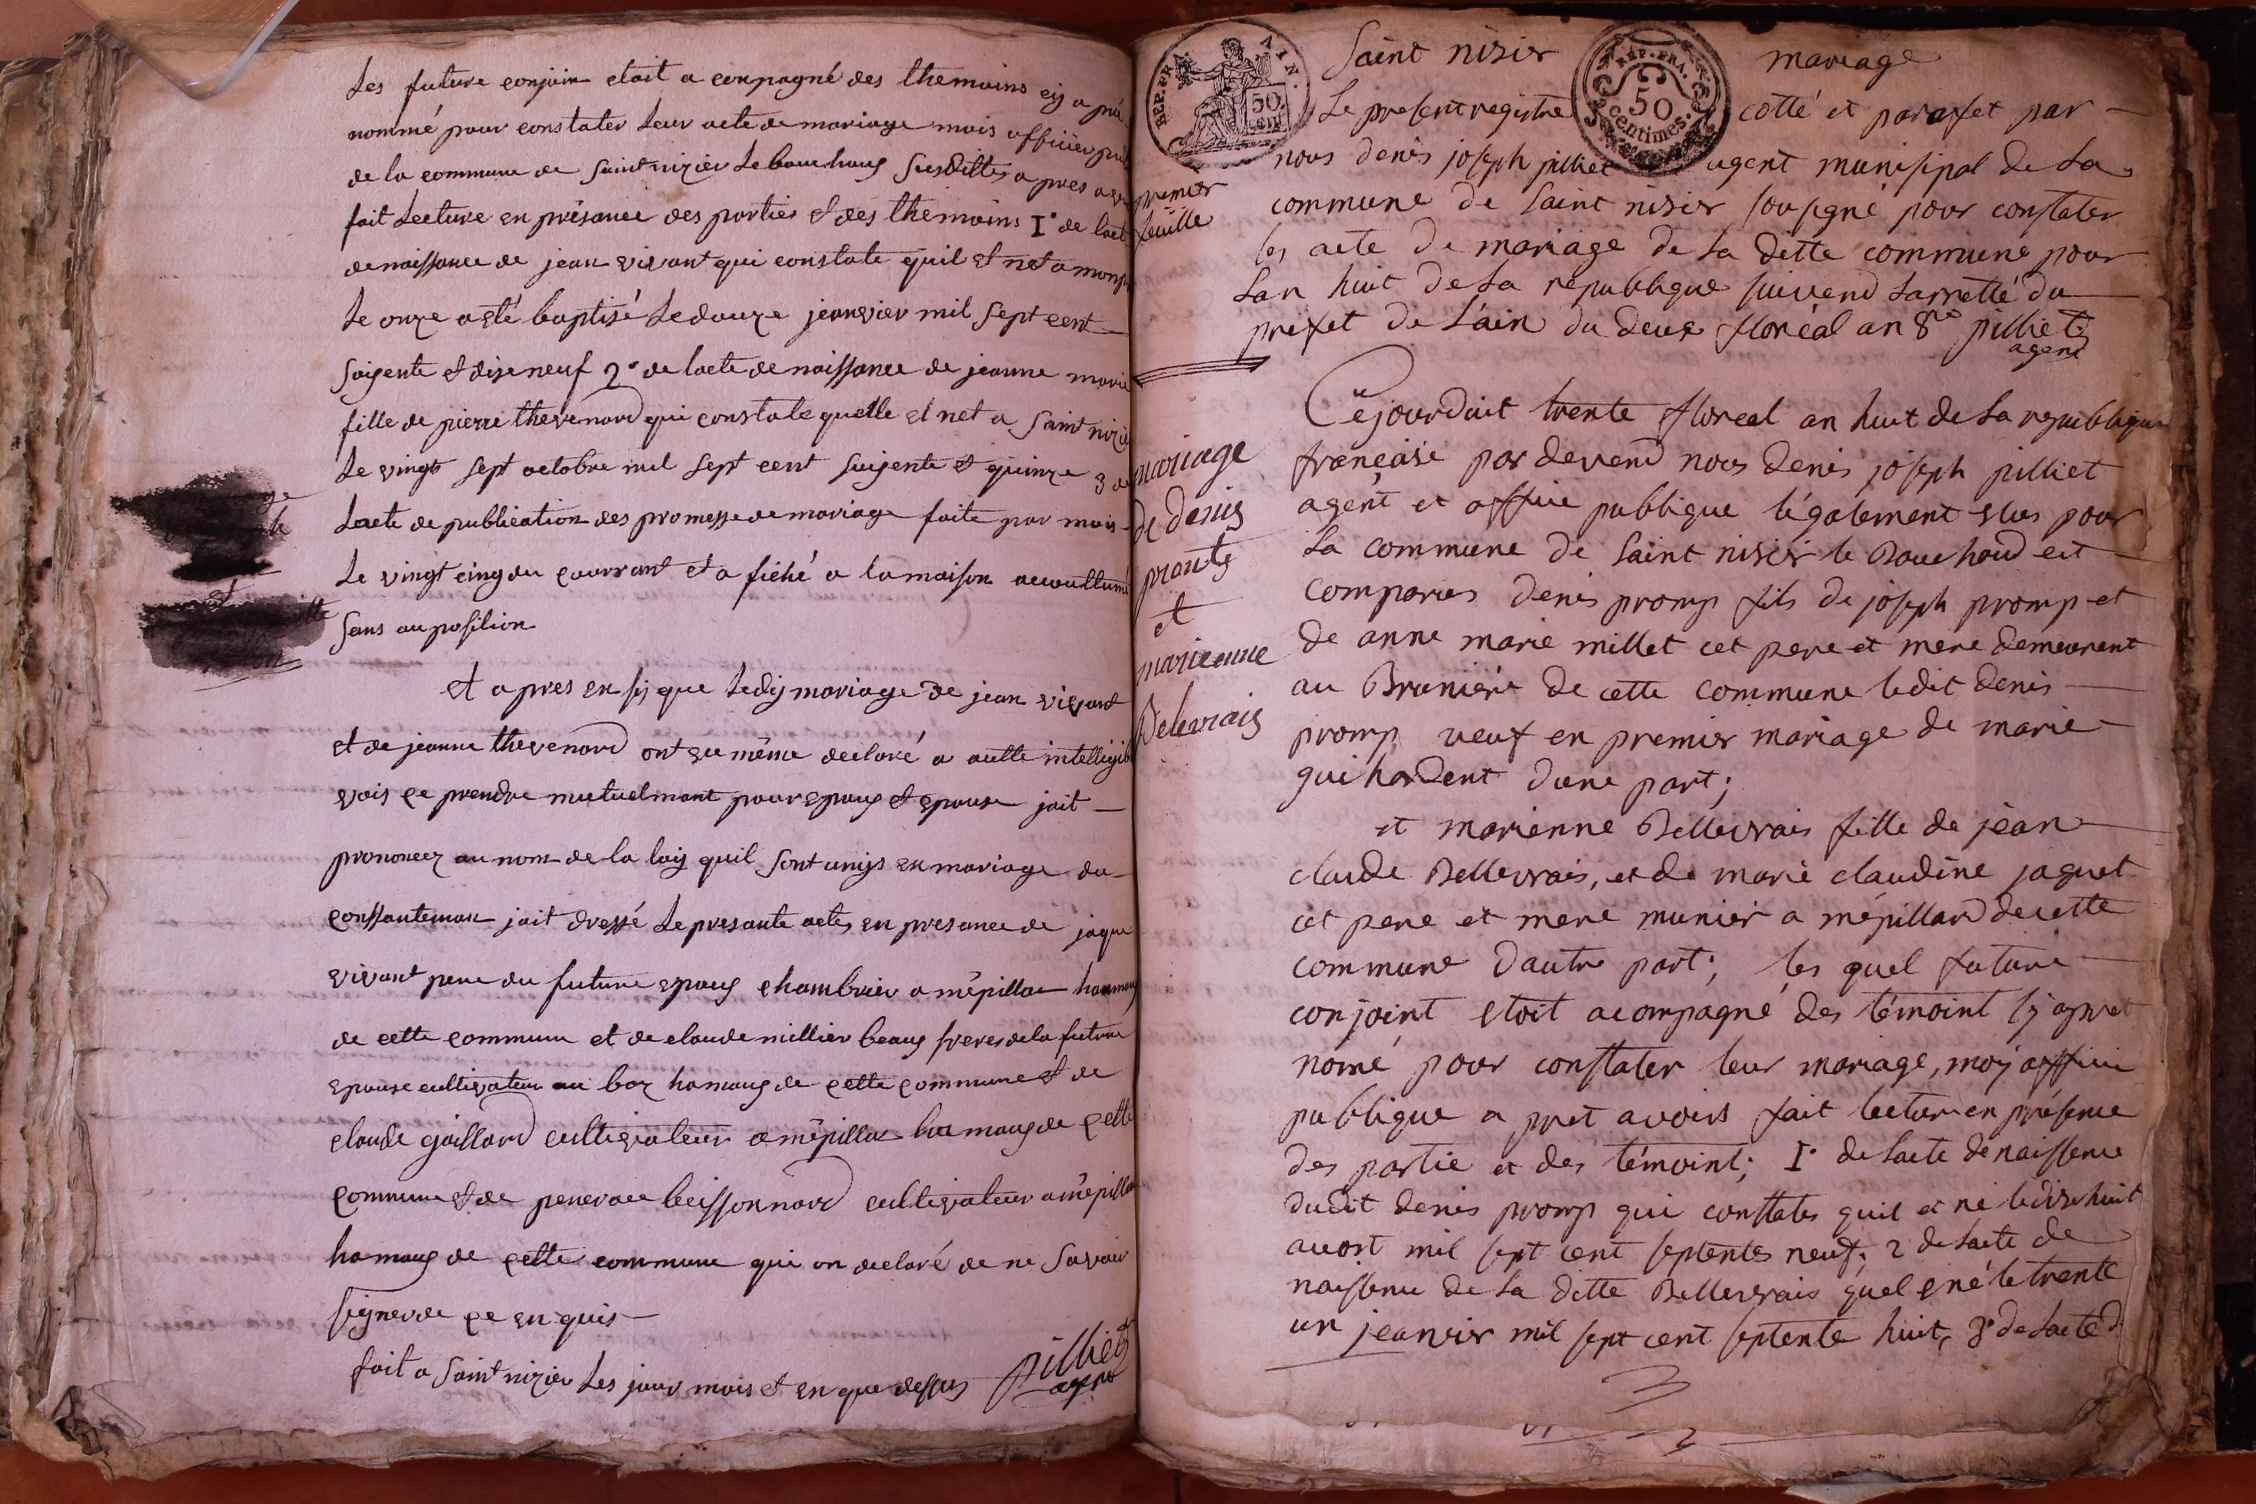 Les future conjoin etoit a conpagné des themoins cij a pré
nommé pour constater Leur acte de mariage mois officier pub
de la commune de Saint nizier Le bouchoug Susdittes apres a
fait Lecture en présance des parties et des themoins 1° de lact
de naissance de jean vivant qui constate quil et net a
Le onze a eté baptisé Le douze jeanvier mil Sept cent
Soigente et dize neuf 2° de lacte de naissance de jeanne marie
fille de pierre thevenard qui constate quelle et net a Saint nizie
Le vingt Sept octobre mil Sept cent Soigente et quinze 3 de
Lacte de publication des promesse de mariage faite par mois
Le vingt cinq du courrant et a fiché a la maison accoultumé
Sans auposition
et
et apres en sij que Ledij mariage de jean vivant
et de jeanne thevenard ont eu même declaré a aulte intelligib
vois ce prendre mutuelmant pour epoug et epouse jait
prononcez au nom de la loij quil Sont unijs en mariage du
conssanteman jait dressé Le presante acte, en presance de jaque
vivant pere du future epoug chambrier a mépillac hamaug
de cette commune et de claude millier beaug freres de la future
epouse cultivateur au boz hamaug de cette commune et de
claude gaillard cultivateur a mépillac hamaug de cette
commune et de buissonnard cultivateur a mépillac
hamaug de cette commune qui on declaré de ne Savoir
Signer de ce en quis
fait a Saint nizier Les jour mois et en que dessus pilliet
agent
REP. FRA. AIN.
50 cen.
REP. FRA.
50
centimes.
Saint nisier mariage
Le present registre cotté et parafet par
nous denis joseph pilliet agent munisipal de La
premier
feuille
commune de Saint nisier sousigné pour constater
les acte de mariage de La ditte commune pour
Lan huit de La republique suivend Larretté du
prefet de L'ain du deux floréal an 8me pilliet
agent
Cejourduit trente floreal an huit de La republique
mariage
de denis
prompt
et
marieanne
Belevrais
françaisé par devend nous denis joseph pilliet
agent et officie publique légalement elus pour
La commune de Saint nisier le Bouchoud est
comparus denis promp fils de joseph promp et
de anne marie millet cet pere et mere demeurent
au Bruniéré de cette commune ledit denis
promp veuf en premier mariage de marie
guihardent dune part;
et marienne Bellevrais fille de jean
claude Bellevrais, et de marie claudine jaquet
cet pere et mere munier a mépillard de cette
commune dautre part; les quel future
conjoint etoit acompagné des témoint sy apret
nomé pour constater leur mariage, moy officie
publique a pret avoirs fait lecture en présence
des partie et des témoint; 1° de Lacte de naissence
dudit denis promp qui constates quil et né le dize huit
auost mil sept cent septentes neuf; 2 de Lacte de
naissence de La ditte Bellevrais quel e né le trente
un jeanvir mil sept cent septente huit, 3° de Lacte d